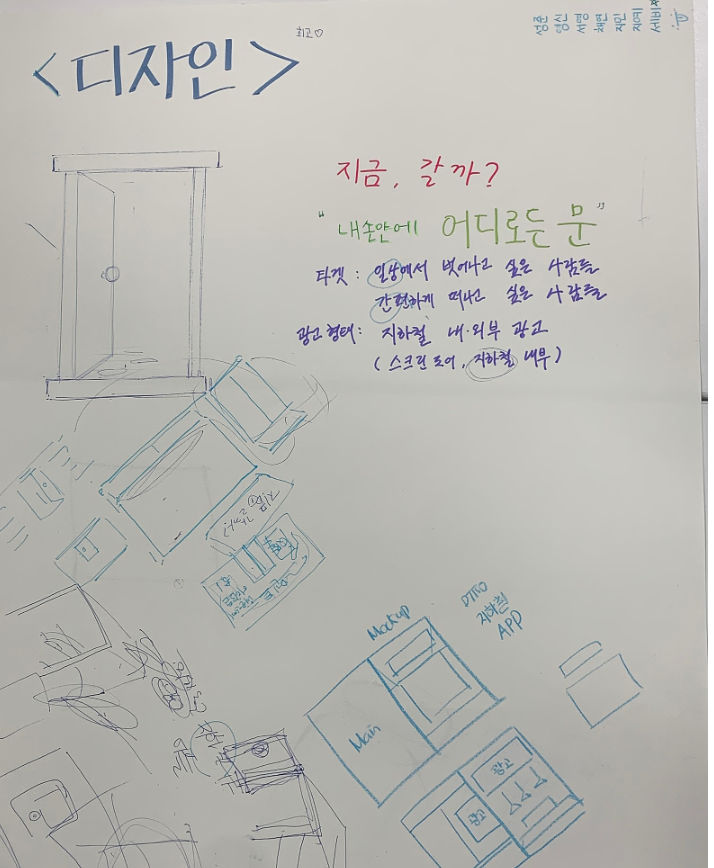 <디자인>
최고♡
성준
서령
채연
지민
지예
세비
지금, 갈까?
"내손안에 어디로든 문"
타겟 : 일상에서 벗어나고 싶은 사람들
간편하게 떠나고 싶은 사람들
광고형태: 지하철 내·외부 광고
(스크린도어, 지하철 내부)
Mockup
Main
DTRO
지하철
APP
광고
광고